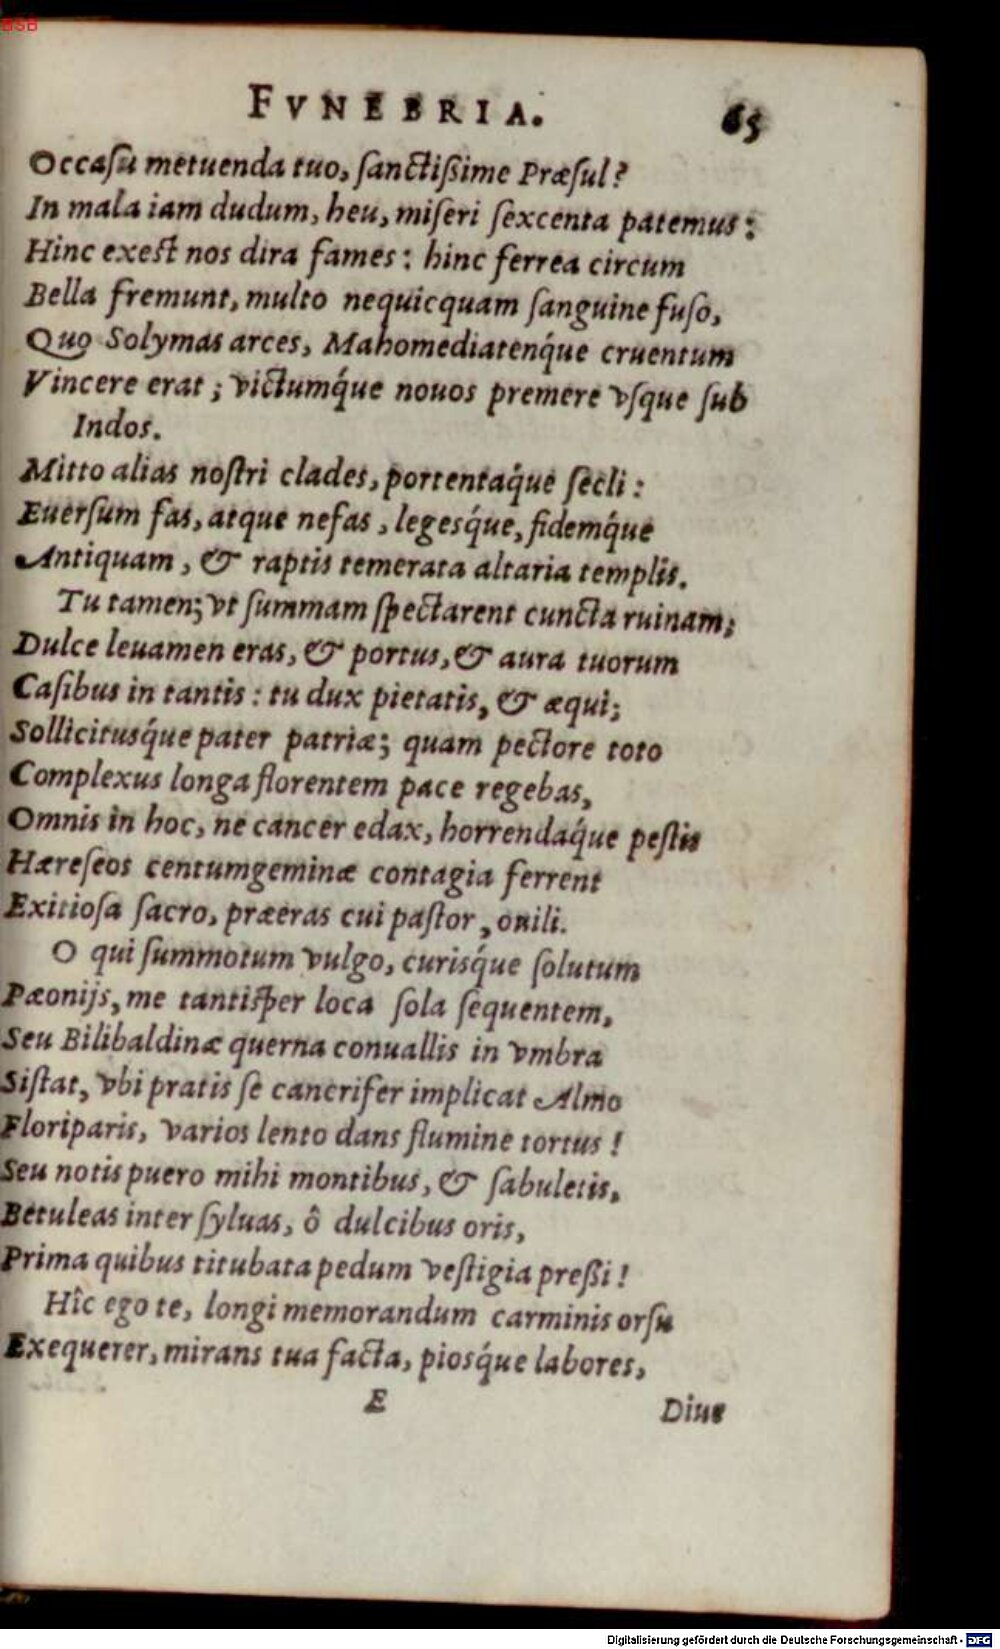 BSB
FVNEBRIA. 65
Occaſu metuenda tuo, ſanctiſsime Præſul?
In mala iam dudum, heu, miſeri ſexcenta patemus:
Hinc exeſt nos dira fames: hinc ferrea circum
Bella fremunt, multo nequicquam ſanguine fuſo,
Quo Solymas arces, Mahomediatenq́ue cruentum
Vincere erat; victumq́ue nouos premere vſque ſub
Indos.
Mitto alias noſtri clades, portentaq́ue ſecli:
Euerſum fas, atque nefas, legesq́ue, fidemq́ue
Antiquam, & raptis temerata altaria templis.
Tu tamen; vt ſummam ſpectarent cuncta ruinam;
Dulce leuamen eras, & portus, & aura tuorum
Caſibus in tantis: tu dux pietatis, & æqui;
Sollicitusq́ue pater patriæ; quam pectore toto
Complexus longa florentem pace regebas,
Omnis in hoc, ne cancer edax, horrendaq́ue peſtis
Hæreſeos centumgeminæ contagia ferrent
Exitioſa ſacro, præeras cui paſtor, ouili.
O qui ſummotum vulgo, curisq́ue ſolutum
Pæonijs, me tantiſper loca ſola ſequentem,
Seu Bilibaldinæ querna conuallis in vmbra
Siſtat, vbi pratis ſe cancrifer implicat Almo
Floriparis, varios lento dans flumine tortus!
Seu notis puero mihi montibus, & ſabuletis,
Betuleas inter ſyluas, ô dulcibus oris,
Prima quibus titubata pedum veſtigia preſsi!
Hîc ego te, longi memorandum carminis orſu
Exequerer, mirans tua facta, piosq́ue labores,
E Diue
Digitalisierung gefördert durch die Deutsche Forschungsgemeinschaft - DFG